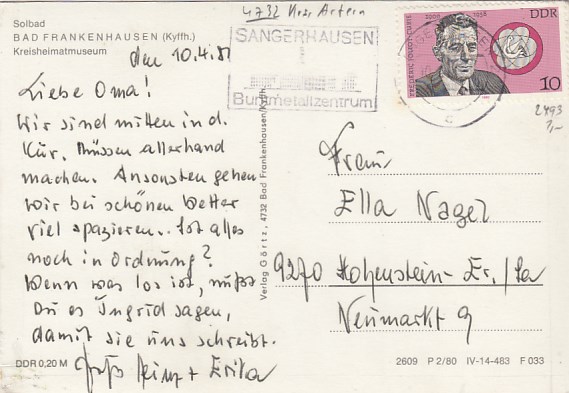 4732 Kreis Artern
Solbad
BAD FRANKENHAUSEN (Kyffh.)
Kreisheimatmuseum
SANGERHAUSEN
Buntmetallzentrum
FRÉDÉRIC JOLIOT-CURIE
1900 1958
DDR
10
2493
den 10.4.81
Liebe Oma!
Wir sind mitten in d.
Kur. Müssen allerhand
machen. Ansonsten gehen
wir bei schönen Wetter
viel spazieren. Ist alles
noch in Ordnung?
Wenn was los ist, mußt
Du es Ingrid sagen,
damit sie uns schreibt.
Gruß Heinz + Erika
Verlag Görtz, 4732 Bad Frankenhausen/Kyffh.
Frau
Ella Nagel
9270 Hohenstein-Er./Sa
Neumarkt 9
DDR 0,20 M
2609 P 2/80 IV-14-483 F 033